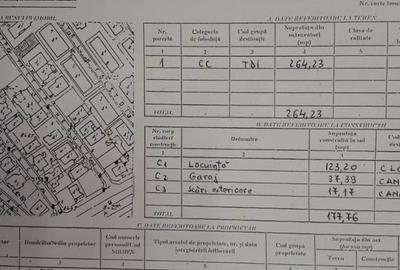 Nr. carte
A. DATE REFERITOARE LA TEREN
Nr. parcelă
Categoria de folosință
Cod grupă destinație
Suprafața din măsurători (mp)
Clasa de calitate
1 2 3 4 5
1 CC TDI 264,23
TOTAL 264,23
B. DATE REFERITOARE LA CONSTRUCȚII
Nr. corp clădire/ construcție
Denumire
Suprafața construită la sol (mp)
1 2 3
C1 Locuință 123,20
C2 Garaj 37,39
C3 Scări exterioare 17,17
TOTAL 177,76
C. DATE REFERITOARE LA PROPRIETAR
Domiciliul/sediu proprietar
Cod numeric personal/Cod SIRUES
Tipul actului de proprietate, nr. și data
Cod grupă proprietate
Suprafața din act
Teren Construcție